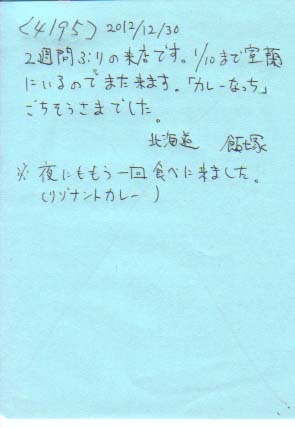 〈4195〉 2012/12/30
2週間ぶりの来店です。1/10まで室蘭
にいるのでまた来ます。「カレーなっち」
ごちそうさまでした。
北海道 飯塚
※ 夜にももう一回食べに来ました。
(リゾナントカレー)